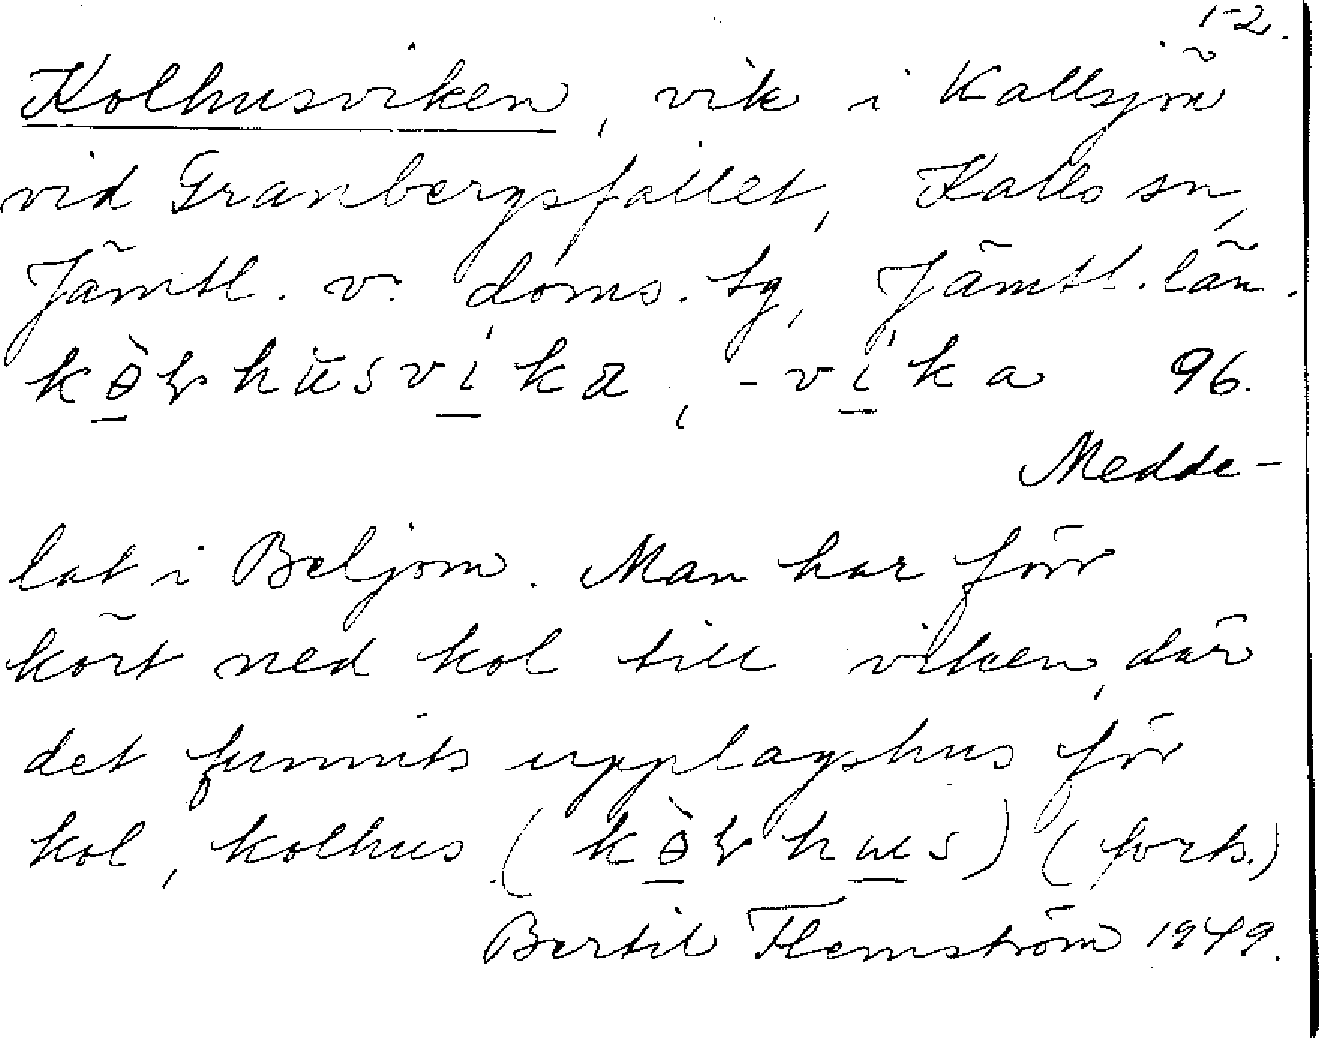 1-2.
Kolhusviken, vik i Kallsjön
vid Granbergsfallet, Kalls sn,
Jämtl. v. doms. tg, Jämtl. län.
kò̱ɽhusvi̱ka, -vi̱ka 96.
Medde-
lat i Beljom. Man har förr
kört ned kol till viken, där
det funnits upplagshus för
kol, kolhus (kò̱ɽhu̱s) (forts.)
Bertil Flemström 1949.